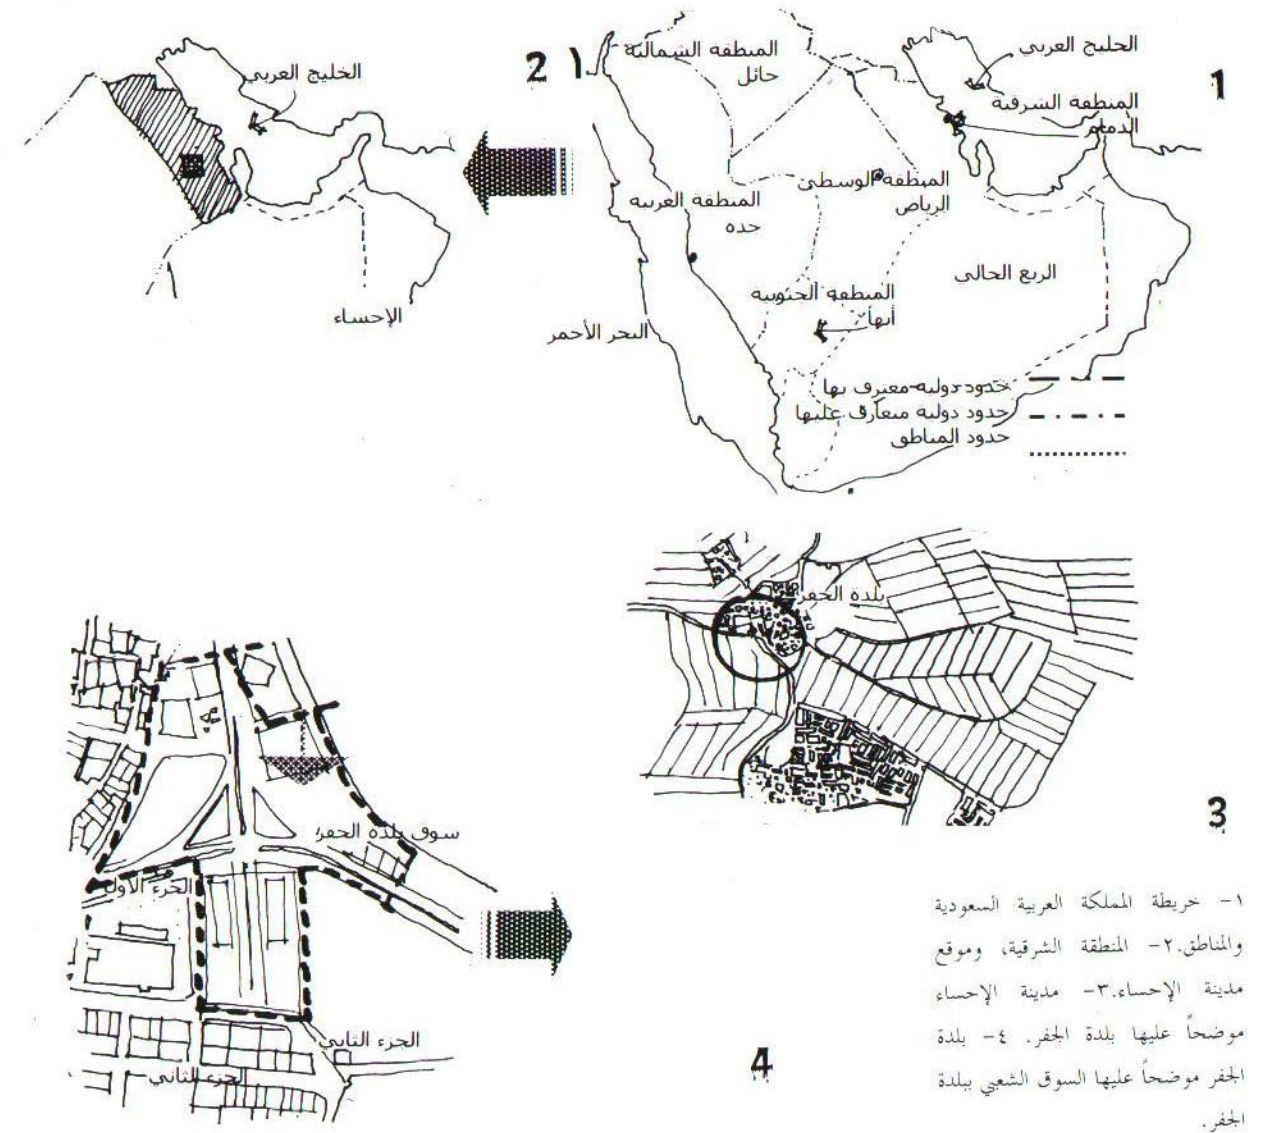 1
الخليج العربي
المنطقة الشرقية
الدمام
المنطقة الشمالية
حائل
المنطقة الوسطى
الرياض
المنطقة الغربية
جده
الربع الخالي
المنطقة الجنوبية
أبها
البحر الأحمر
حدود دولية معترف بها
حدود دولية متعارف عليها
حدود المناطق
2
الخليج العربي
الإحساء
3
بلدة الجفر
4
سوق بلدة الجفر
الجزء الأول
الجزء الثاني
الجزء الثاني
١- خريطة المملكة العربية السعودية
والمناطق.٢- المنطقة الشرقية، وموقع
مدينة الإحساء.٣- مدينة الإحساء
موضحاً عليها بلدة الجفر. ٤- بلدة
الجفر موضحاً عليها السوق الشعبي ببلدة
الجفر.